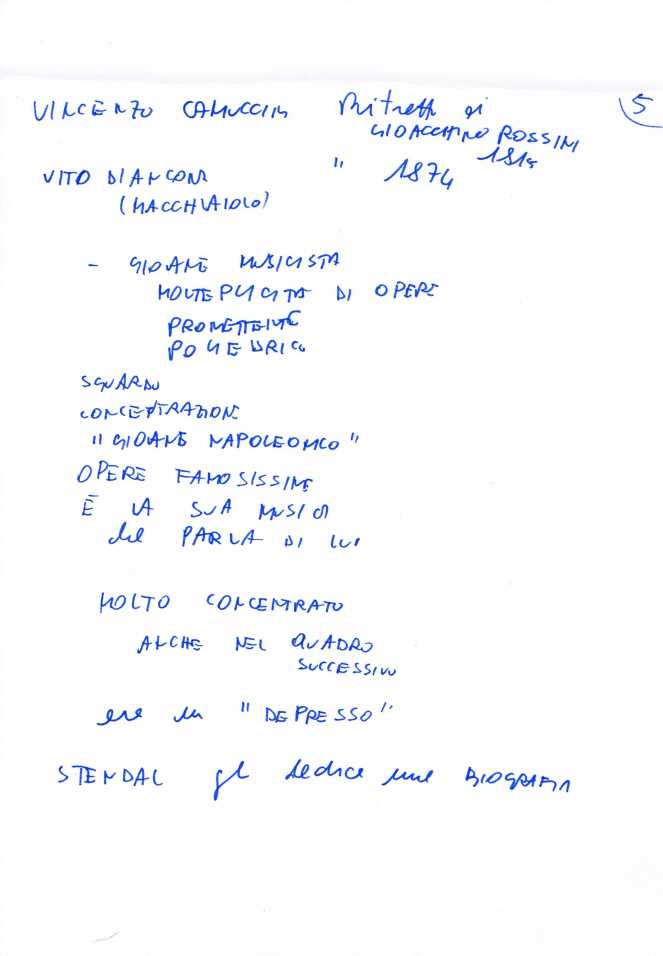 5
VINCENZO CAMUCCINI Ritratto di
GIOACCHINO ROSSINI
VITO D'ANCONA " 1874
(MACCHIAIOLO)
- GIOVANE MUSICISTA
MOLTEPLICITÀ DI OPERE
PROMETTENTE
POLIEDRICO
SGUARDO
CONCENTRAZIONE
"GIOVANE NAPOLEONICO"
OPERE FAMOSISSIME
È LA SUA MUSICA
che PARLA DI LUI
MOLTO CONCENTRATO
ANCHE NEL QUADRO
SUCCESSIVO
era un "DEPRESSO"
STENDAL gli dedica una BIOGRAFIA